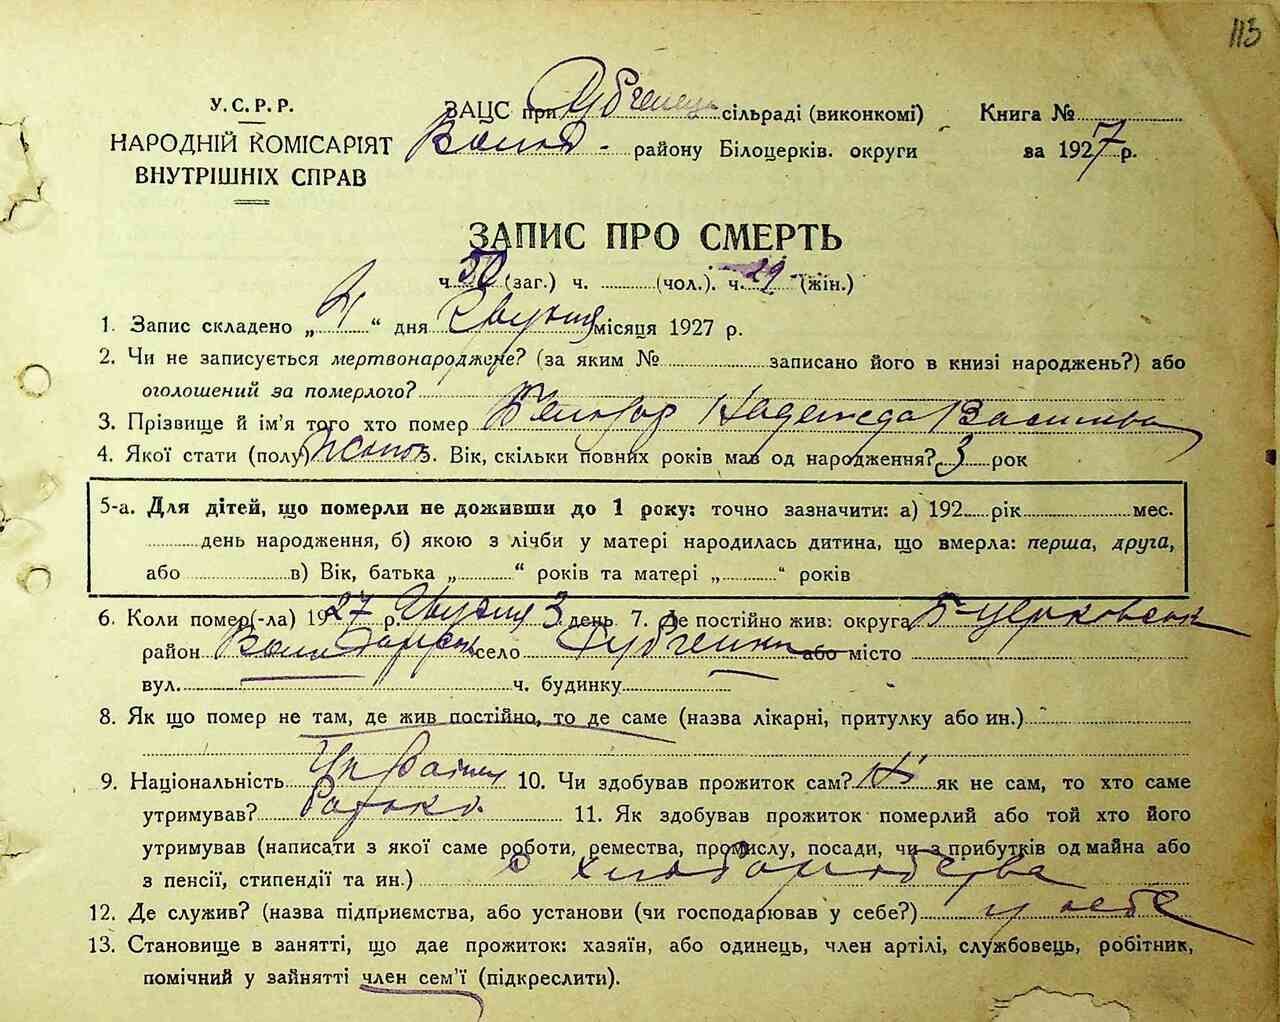 113
У.С.Р.Р.
НАРОДНІЙ КОМІСАРІЯТ
ВНУТРІШНІХ СПРАВ
ЗАЦС при сільраді (виконкомі)
районy Білоцерків. округи
Книга №
за 1927 р.
ЗАПИС ПРО СМЕРТЬ
ч. 50 (заг.) ч. (чол.). ч. 29 (жін.)
1. Запис складено „4“ дня місяця 1927 р.
2. Чи не записується мертвонароджене? (за яким № записано його в книзі народжень?) або
оголошений за померлого?
3. Прізвище й ім'я того хто помер Надежда
4. Якої стати (полу) 5. Вік, скільки повних років мав од народження? 3 рок
5-а. Для дітей, що померли не доживши до 1 року: точно зазначити: а) 192 рік мес.
день народження, б) якою з лічби у матері народилась дитина, що вмерла: перша, друга,
або в) Вік, батька „ “ років та матері „ “ років
6. Коли помер(-ла) 1927 р. 3 день 7. Де постійно жив: округа Б-церковськ
район село або місто
вул. ч. будинку
8. Як що помер не там, де жив постійно, то де саме (назва лікарні, притулку або ин.)
9. Національність 10. Чи здобував прожиток сам? як не сам, то хто саме
утримував? 11. Як здобував прожиток померлий або той хто його
утримував (написати з якої саме роботи, ремества, промислу, посади, чи з прибутків од майна або
з пенсії, стипендії та ин.) з хліборобства
12. Де служив? (назва підприємства, або установи (чи господарював у себе?) у себе
13. Становище в занятті, що дає прожиток: хазяїн, або одинець, член артілі, службовець, робітник,
помічний у зайнятті член сем'ї (підкреслити).